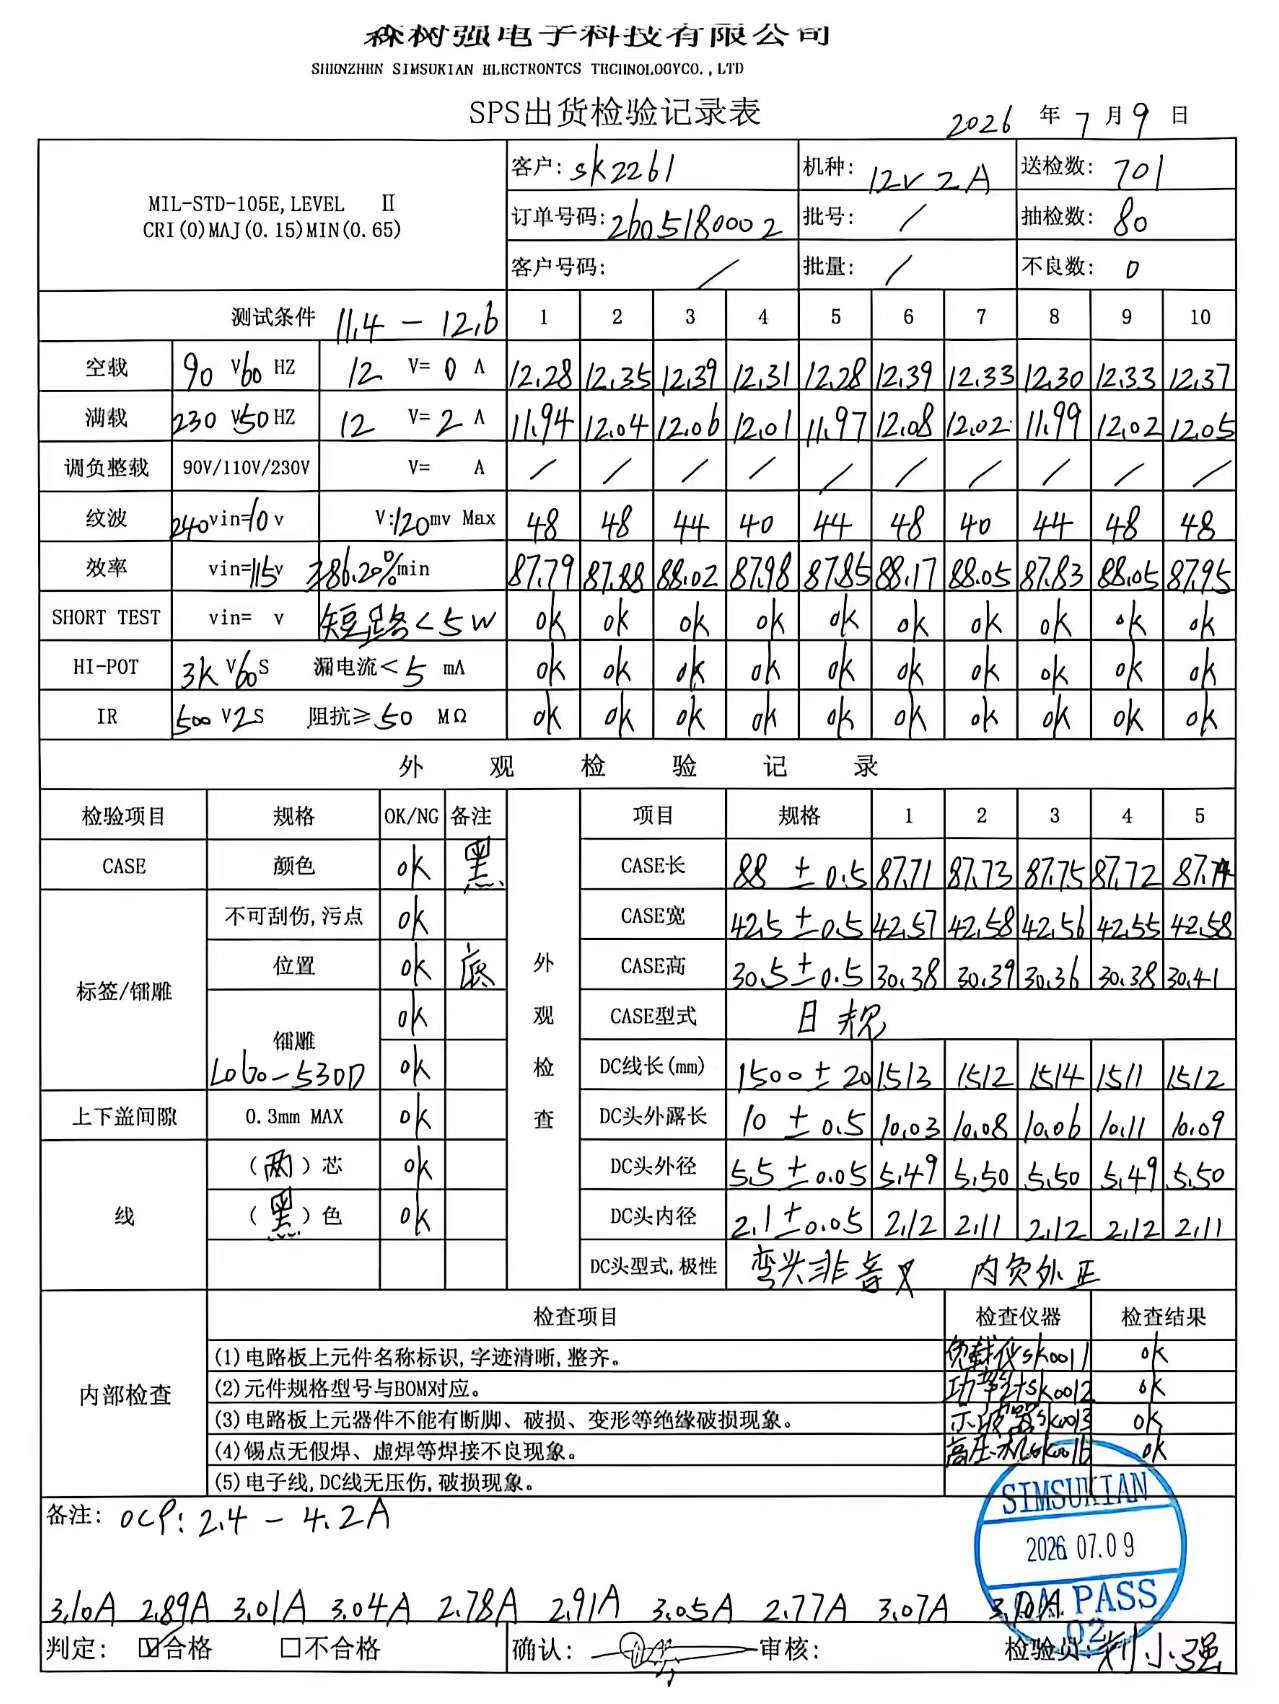 森树强电子科技有限公司
SHENZHEN SIMSUKIAN ELECTRONTCS TECHNOLOGYCO.,LTD
SPS出货检验记录表 2026 年 7 月 9 日
MIL-STD-105E,LEVEL Ⅱ
CRI(0)MAJ(0.15)MIN(0.65)
客户: sk2261 机种: 12V 2A 送检数: 701
订单号码: 2605180002 批号: / 抽检数: 80
客户号码: / 批量: / 不良数: 0
测试条件 11.4 - 12.6 1 2 3 4 5 6 7 8 9 10
空载 90 V 60 HZ 12 V= 0 A 12.28 12.35 12.39 12.31 12.28 12.39 12.33 12.30 12.33 12.37
满载 230 V 50 HZ 12 V= 2 A 11.94 12.04 12.06 12.01 11.97 12.08 12.02 11.99 12.02 12.05
调负整载 90V/110V/230V V= A / / / / / / / / / /
纹波 240 vin=10 v V:120mv Max 48 48 44 40 44 48 40 44 48 48
效率 vin=115v ≥86.20%min 87.79 87.88 88.02 87.98 87.85 88.17 88.05 87.83 88.05 87.95
SHORT TEST vin= v 短路<5W ok ok ok ok ok ok ok ok ok ok
HI-POT 3K V 60 S 漏电流< 5 mA ok ok ok ok ok ok ok ok ok ok
IR 500 V 2 S 阻抗≥ 50 MΩ ok ok ok ok ok ok ok ok ok ok
外观检验记录
检验项目 规格 OK/NG 备注 项目 规格 1 2 3 4 5
CASE 颜色 ok 黑 CASE长 88 ±0.5 87.71 87.73 87.75 87.72 87.74
不可刮伤,污点 ok CASE宽 42.5±0.5 42.57 42.58 42.56 42.55 42.58
标签/镭雕 位置 ok 底 外观检查 CASE高 30.5±0.5 30.38 30.39 30.36 30.38 30.41
ok CASE型式 日规
镭雕 LOGO-530D ok DC线长(mm) 1500±20 1513 1512 1514 1511 1512
上下盖间隙 0.3mm MAX ok DC头外露长 10 ±0.5 10.03 10.08 10.06 10.11 10.09
(两)芯 ok DC头外径 5.5±0.05 5.49 5.50 5.50 5.49 5.50
线 (黑)色 ok DC头内径 2.1±0.05 2.12 2.11 2.12 2.12 2.11
DC头型式,极性 弯头非音叉 内负外正
内部检查 检查项目 检查仪器 检查结果
(1)电路板上元件名称标识,字迹清晰,整齐。 负载仪sk0011 ok
(2)元件规格型号与BOM对应。 功率计sk0012 ok
(3)电路板上元器件不能有断脚、破损、变形等绝缘破损现象。 示波器sk0013 ok
(4)锡点无假焊、虚焊等焊接不良现象。 高压机sk0016 ok
(5)电子线,DC线无压伤,破损现象。
备注: OCP: 2.4 - 4.2A
SIMSUKIAN
2026.07.09
3.10A 2.89A 3.01A 3.04A 2.78A 2.91A 3.05A 2.77A 3.07A
PASS
02
判定: ☑合格 □不合格 确认: 审核: 检验员: 刘小强